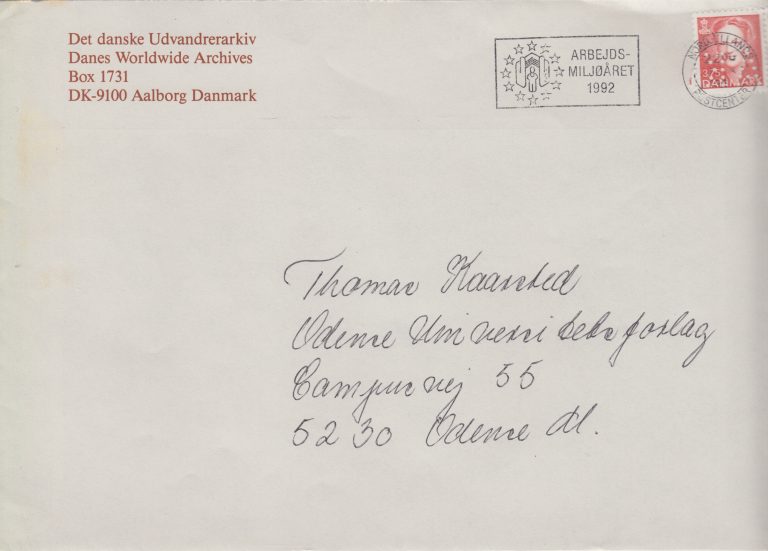 Det danske Udvandrerarkiv
Danes Worldwide Archives
Box 1731
DK-9100 Aalborg Danmark
ARBEJDS-
MILJØÅRET
1992
DANMARK
POSTCENTER
Thomas Kaarsted
Odense Universitetsforlag
Campusvej 55
5230 Odense M.